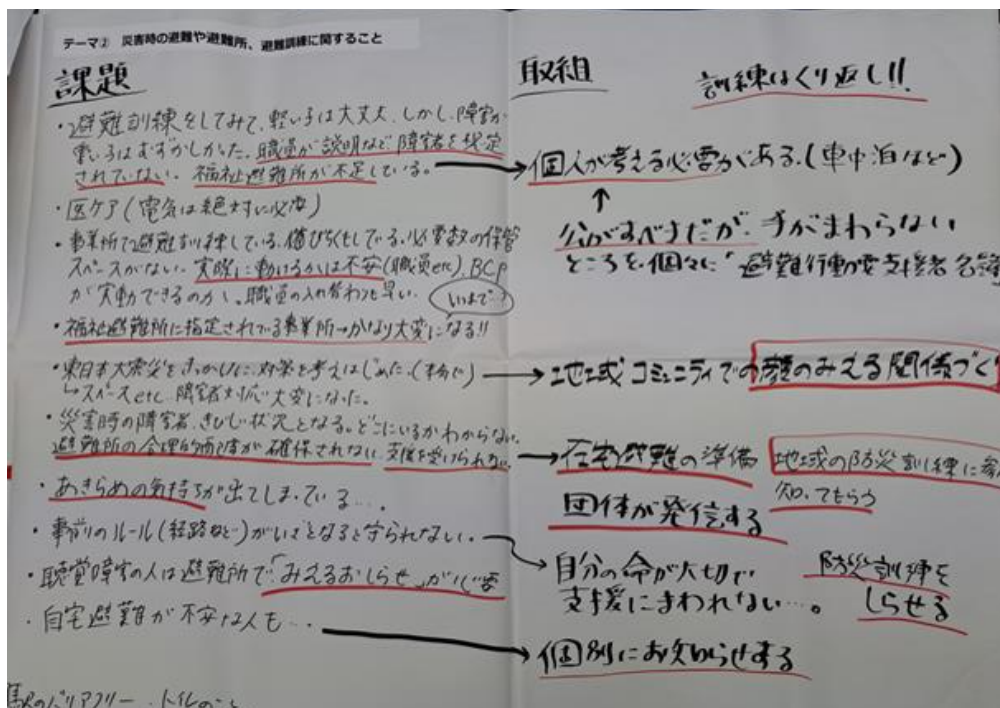 テーマ② 災害時の避難や避難所、避難訓練に関すること
課題
・避難訓練をしてみて、軽い子は大丈夫、しかし、障害が
重い子はむずかしかった。職員が説明など障害者を想定
されていない。福祉避難所が不足している。
・医ケア(電気は絶対に必要)
・事業所で避難訓練している。備びちくもしている。必要数の保管
スペースがない。実際に動けるかは不安(職員etc)、BCP
が実動できるのか、職員の入れ替わりも早い。
いつまで?
・福祉避難所に指定されている事業所→かなり大変になる!!
・東日本大震災をきっかけに、対策を考えはじめた。
↳スペースetc 障害者対応大変になった。
・災害時の障害者、きびしい状況となる。どこにいるかわからない。
避難所の合理的配慮が確保されない 支援を受けられない
・あきらめの気持ちが出てしまっている…。
・事前のルール(経路など)がいざとなると守られない。
・聴覚障害の人は避難所で「みえるおしらせ」が必要
・自宅避難が不安な人も…
バリアフリー トイレのこと
取組
訓練はくり返し!!
個人が考える必要がある。(車中泊など)
↑
公がすべきだが、手がまわらない
ところを、個々に「避難行動要支援者名簿
地域コミュニティでの顔のみえる関係づく
在宅避難の準備
地域の防災訓練に参
知ってもらう
団体が発信する
自分の命が大切で
支援にまわれない…。
防災訓練を
しらせる
個別にお知らせする